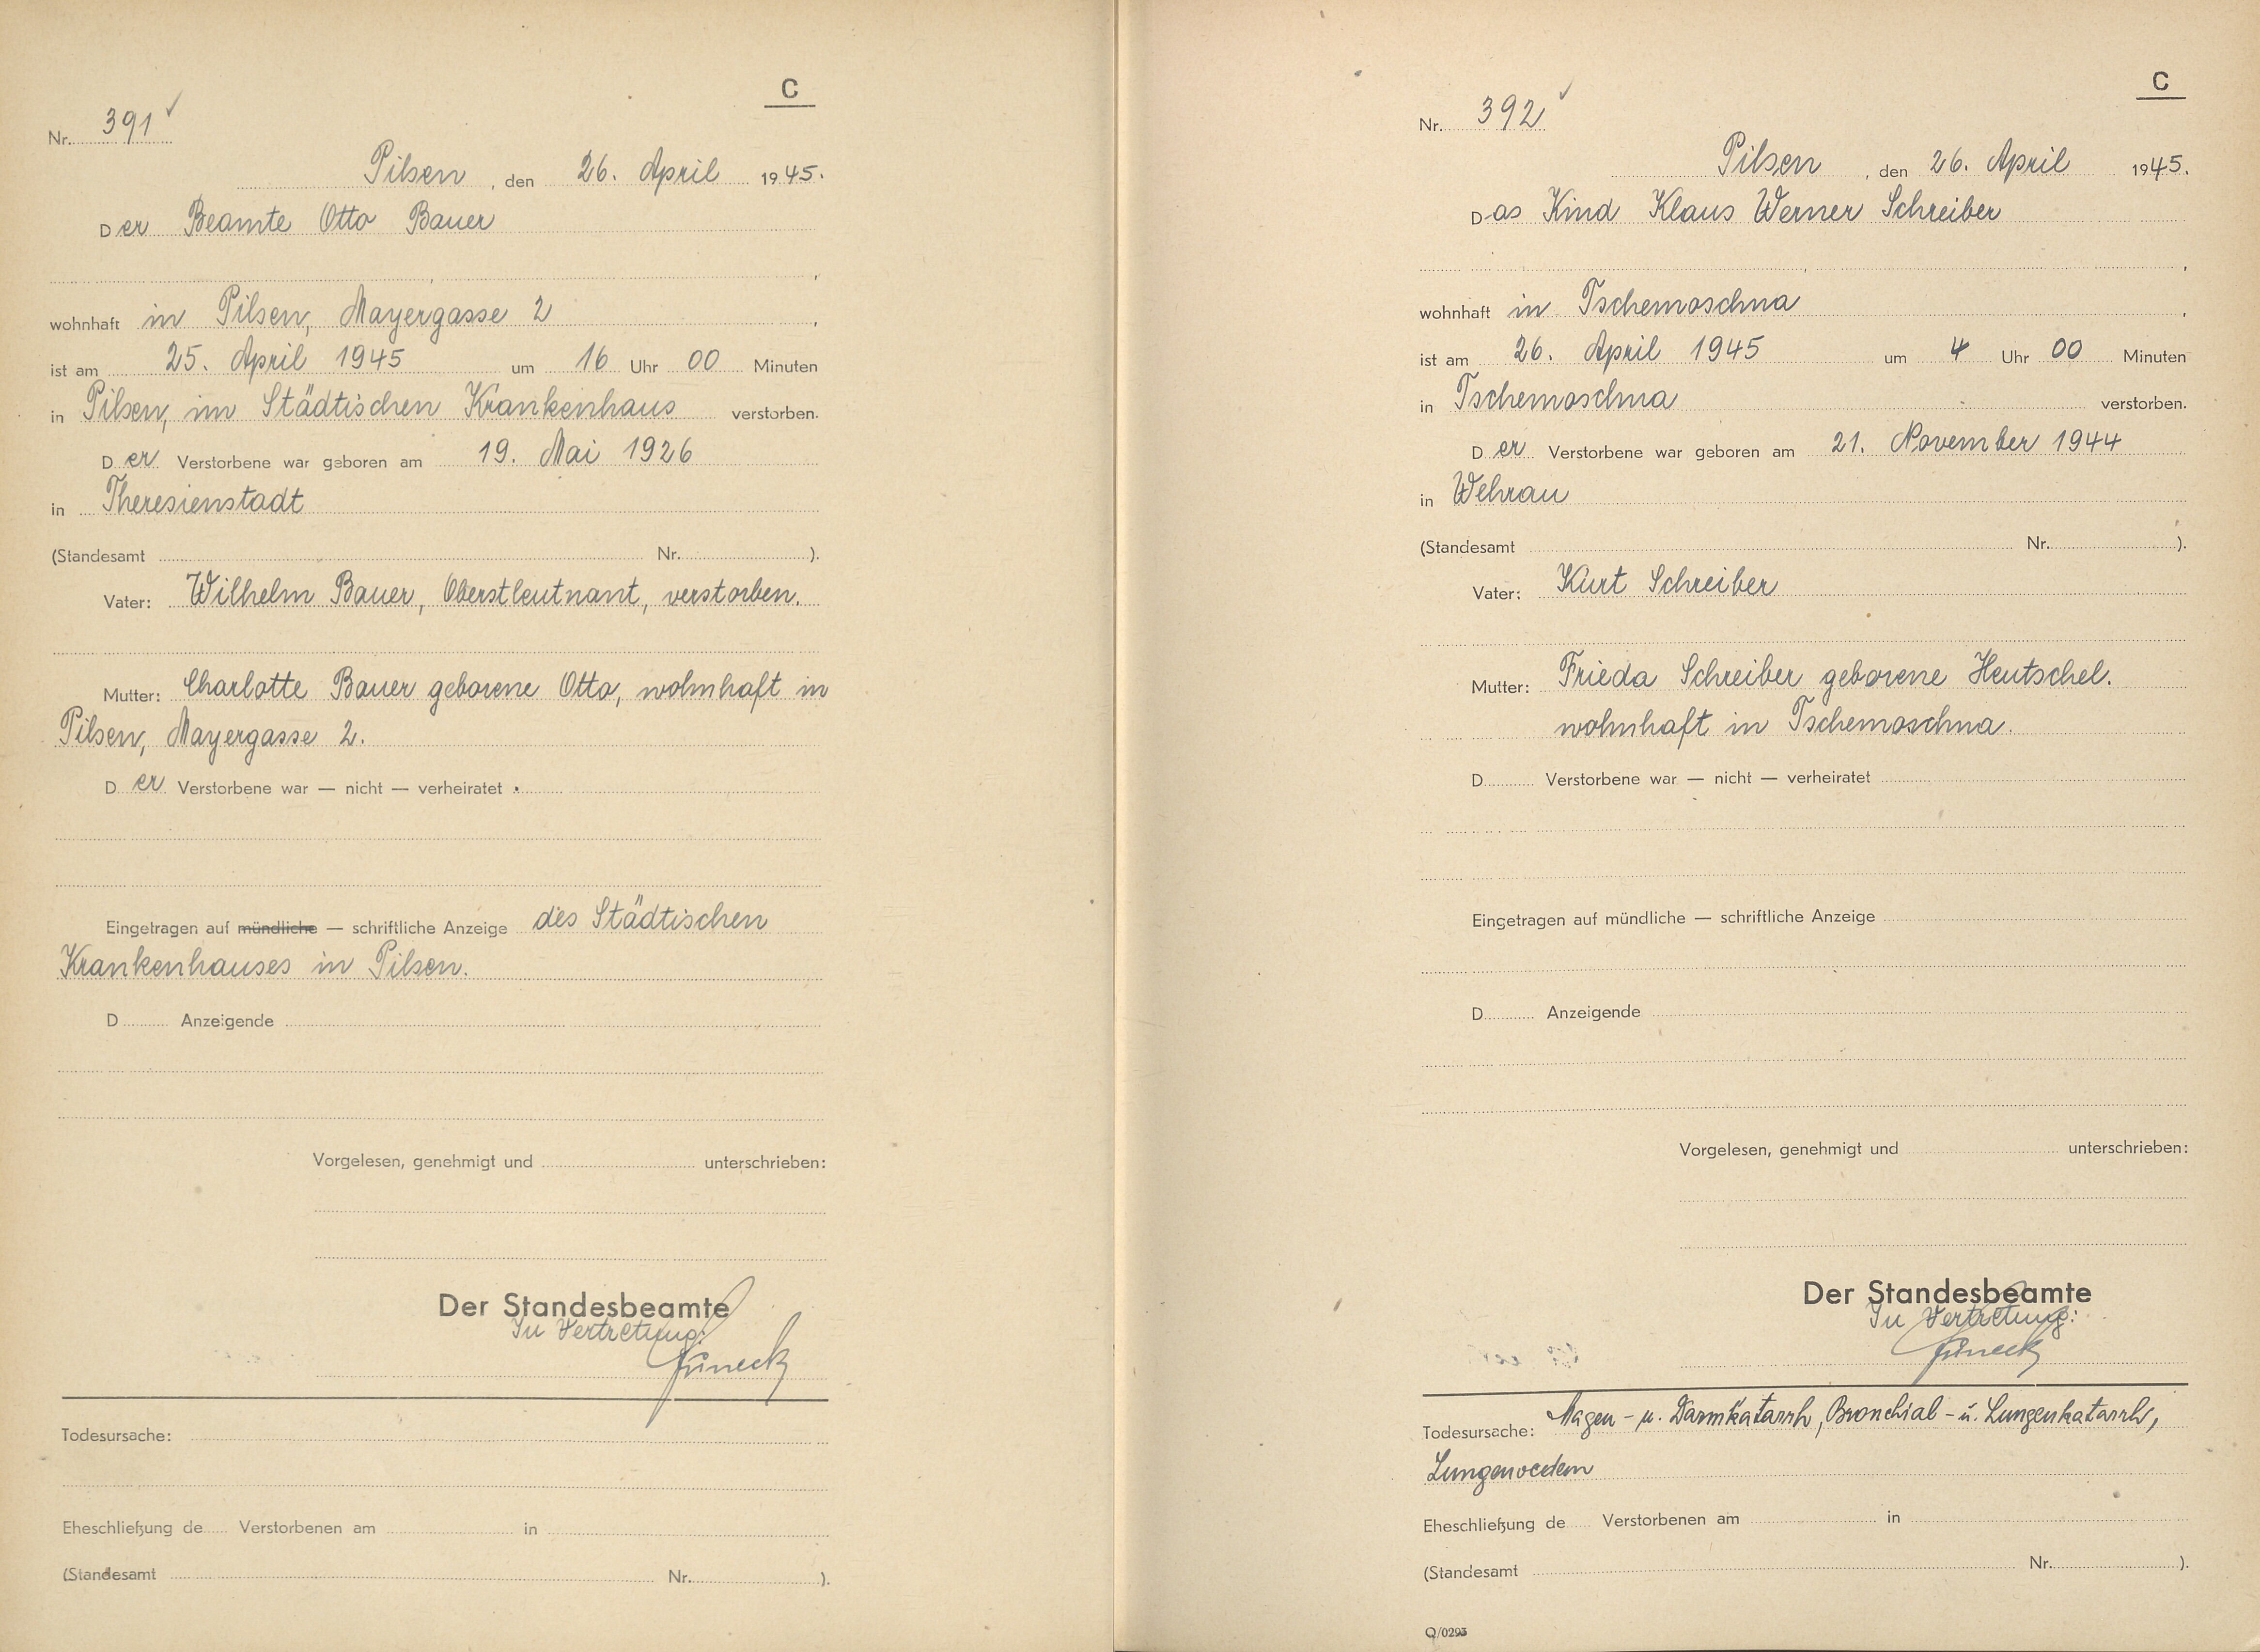 C
Nr. 391
Pilsen, den 26. April 1945.
Der Beamte Otto Bauer
wohnhaft in Pilsen, Mayergasse 2,
ist am 25. April 1945 um 16 Uhr 00 Minuten
in Pilsen, im Städtischen Krankenhaus verstorben.
Der Verstorbene war geboren am 19. Mai 1926
in Theresienstadt
(Standesamt Nr. ).
Vater: Wilhelm Bauer, Oberstleutnant, verstorben.
Mutter: Charlotte Bauer geborene Otto, wohnhaft in
Pilsen, Mayergasse 2.
Der Verstorbene war — nicht — verheiratet.
Eingetragen auf mündliche — schriftliche Anzeige des Städtischen
Krankenhauses in Pilsen.
D Anzeigende
Vorgelesen, genehmigt und unterschrieben:
Der Standesbeamte
In Vertretung:
Todesursache:
Eheschließung de Verstorbenen am in
(Standesamt Nr. ).
C
Nr. 392
Pilsen, den 26. April 1945.
Das Kind Klaus Werner Schreiber
wohnhaft in Tschemoschna,
ist am 26. April 1945 um 4 Uhr 00 Minuten
in Tschemoschna verstorben.
Der Verstorbene war geboren am 21. November 1944
in Wehrau
(Standesamt Nr. ).
Vater: Kurt Schreiber
Mutter: Frieda Schreiber geborene Hentschel.
wohnhaft in Tschemoschna.
D Verstorbene war — nicht — verheiratet
Eingetragen auf mündliche — schriftliche Anzeige
D Anzeigende
Vorgelesen, genehmigt und unterschrieben:
Der Standesbeamte
In Vertretung:
Todesursache: Magen- u. Darmkatarrh, Bronchial- u. Lungenkatarrh,
Lungenoedem
Eheschließung de Verstorbenen am in
(Standesamt Nr. ).
Q/0293